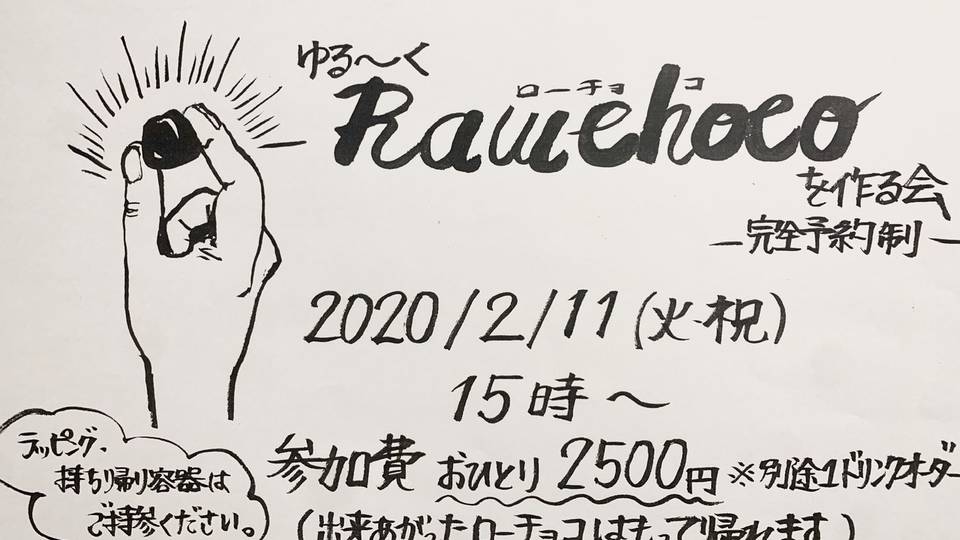 ゆる〜く
ローチョコ
Rawchoco
を作る会
―完全予約制―
2020/2/11(火・祝)
15時〜
参加費 おひとり 2500円 ※別途1ドリンクオーダー
(出来あがったローチョコはもって帰れます)
ラッピング、
持ち帰り容器は
ご持参ください。